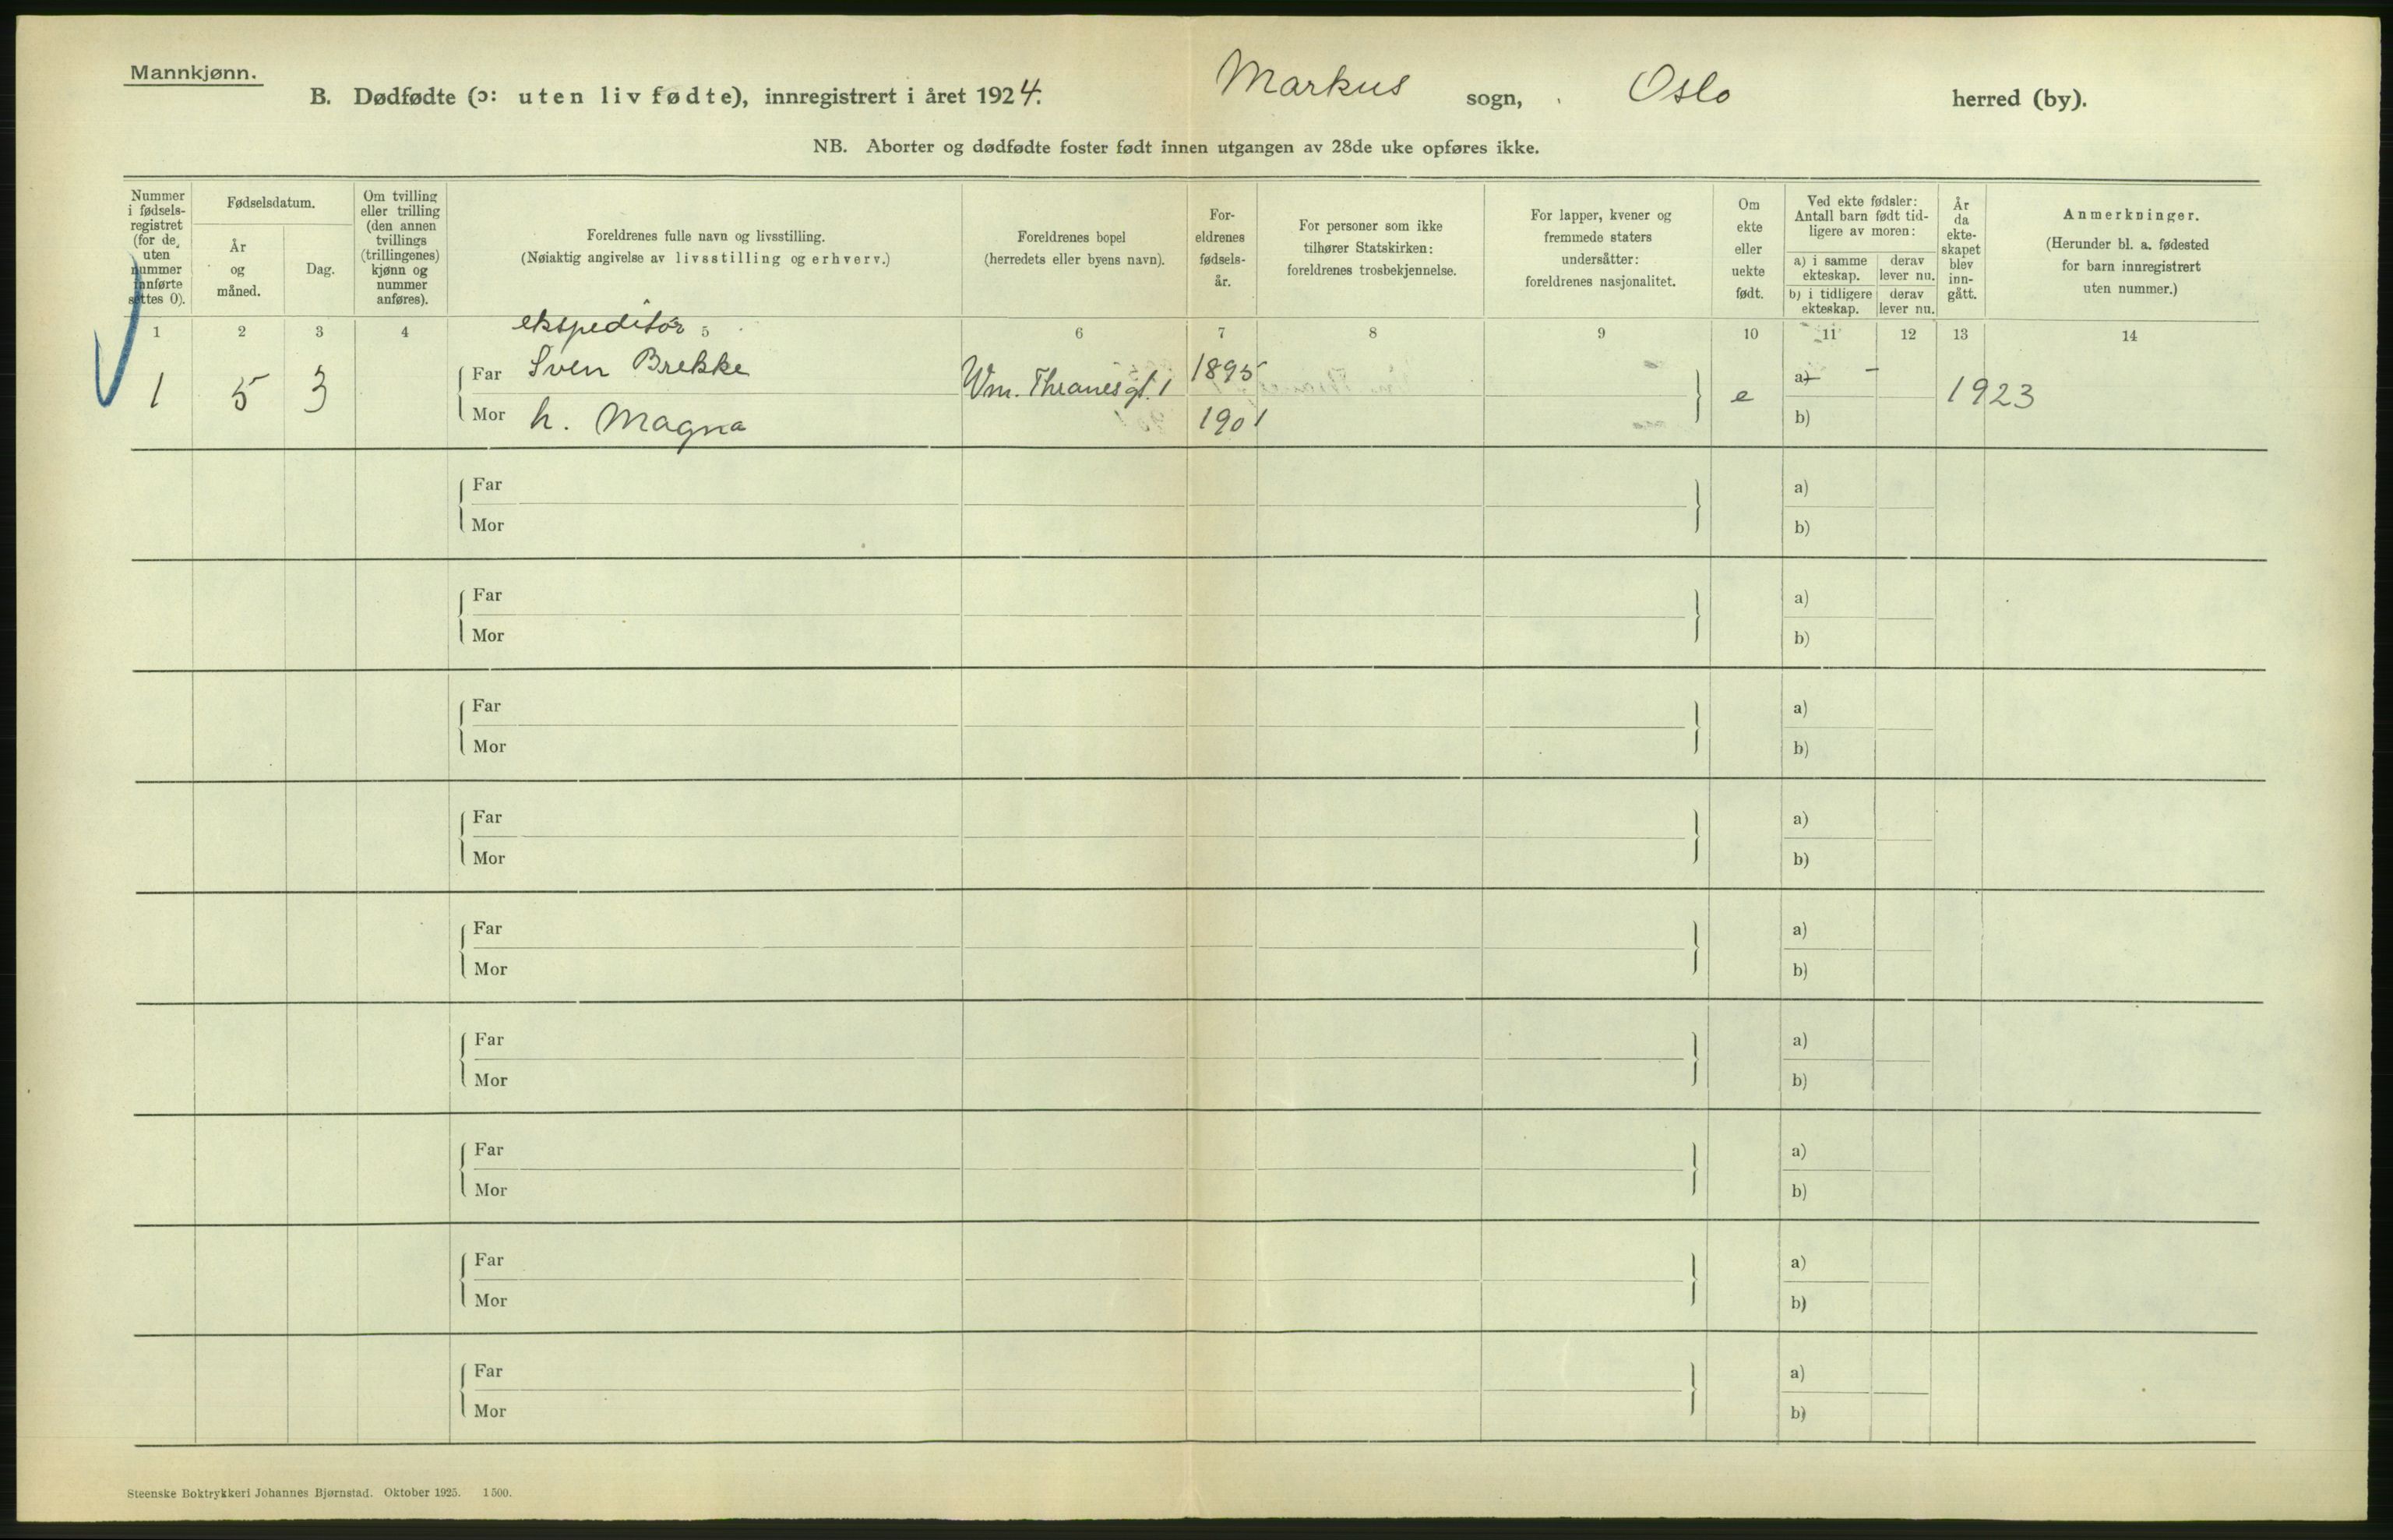 Mannkjønn.
B. Dødfødte (ɔ: uten liv fødte), innregistrert i året 1924. Markus sogn, Oslo herred (by).
NB. Aborter og dødfødte foster født innen utgangen av 28de uke opføres ikke.
Nummer i fødsels-registret (for de uten nummer innførte settes 0).
Fødselsdatum.
År og måned.
Dag.
Om tvilling eller trilling (den annen tvillings (trillingenes) kjønn og nummer anføres).
Foreldrenes fulle navn og livsstilling.
(Nøiaktig angivelse av livsstilling og erhverv.)
Foreldrenes bopel
(herredets eller byens navn).
For-eldrenes fødsels-år.
For personer som ikke tilhører Statskirken: foreldrenes trosbekjennelse.
For lapper, kvener og fremmede staters undersåtter: foreldrenes nasjonalitet.
Om ekte eller uekte født.
Ved ekte fødsler: Antall barn født tid-ligere av moren:
a) i samme ekteskap.
derav lever nu.
b) i tidligere ekteskap.
derav lever nu.
År da ekte-skapet blev inn-gått.
Anmerkninger.
(Herunder bl. a. fødested for barn innregistrert uten nummer.)
1 2 3 4 5 6 7 8 9 10 11 12 13 14
ekspeditør
1 5 3 Far Sven Brekke Wm. Thranesgt. 1 1895 e a) - 1923
Mor h. Magna 1901 b)
Far a)
Mor b)
Far a)
Mor b)
Far a)
Mor b)
Far a)
Mor b)
Far a)
Mor b)
Far a)
Mor b)
Far a)
Mor b)
Far a)
Mor b)
Far a)
Mor b)
Steenske Boktrykkeri Johannes Bjørnstad. Oktober 1925. 1500.